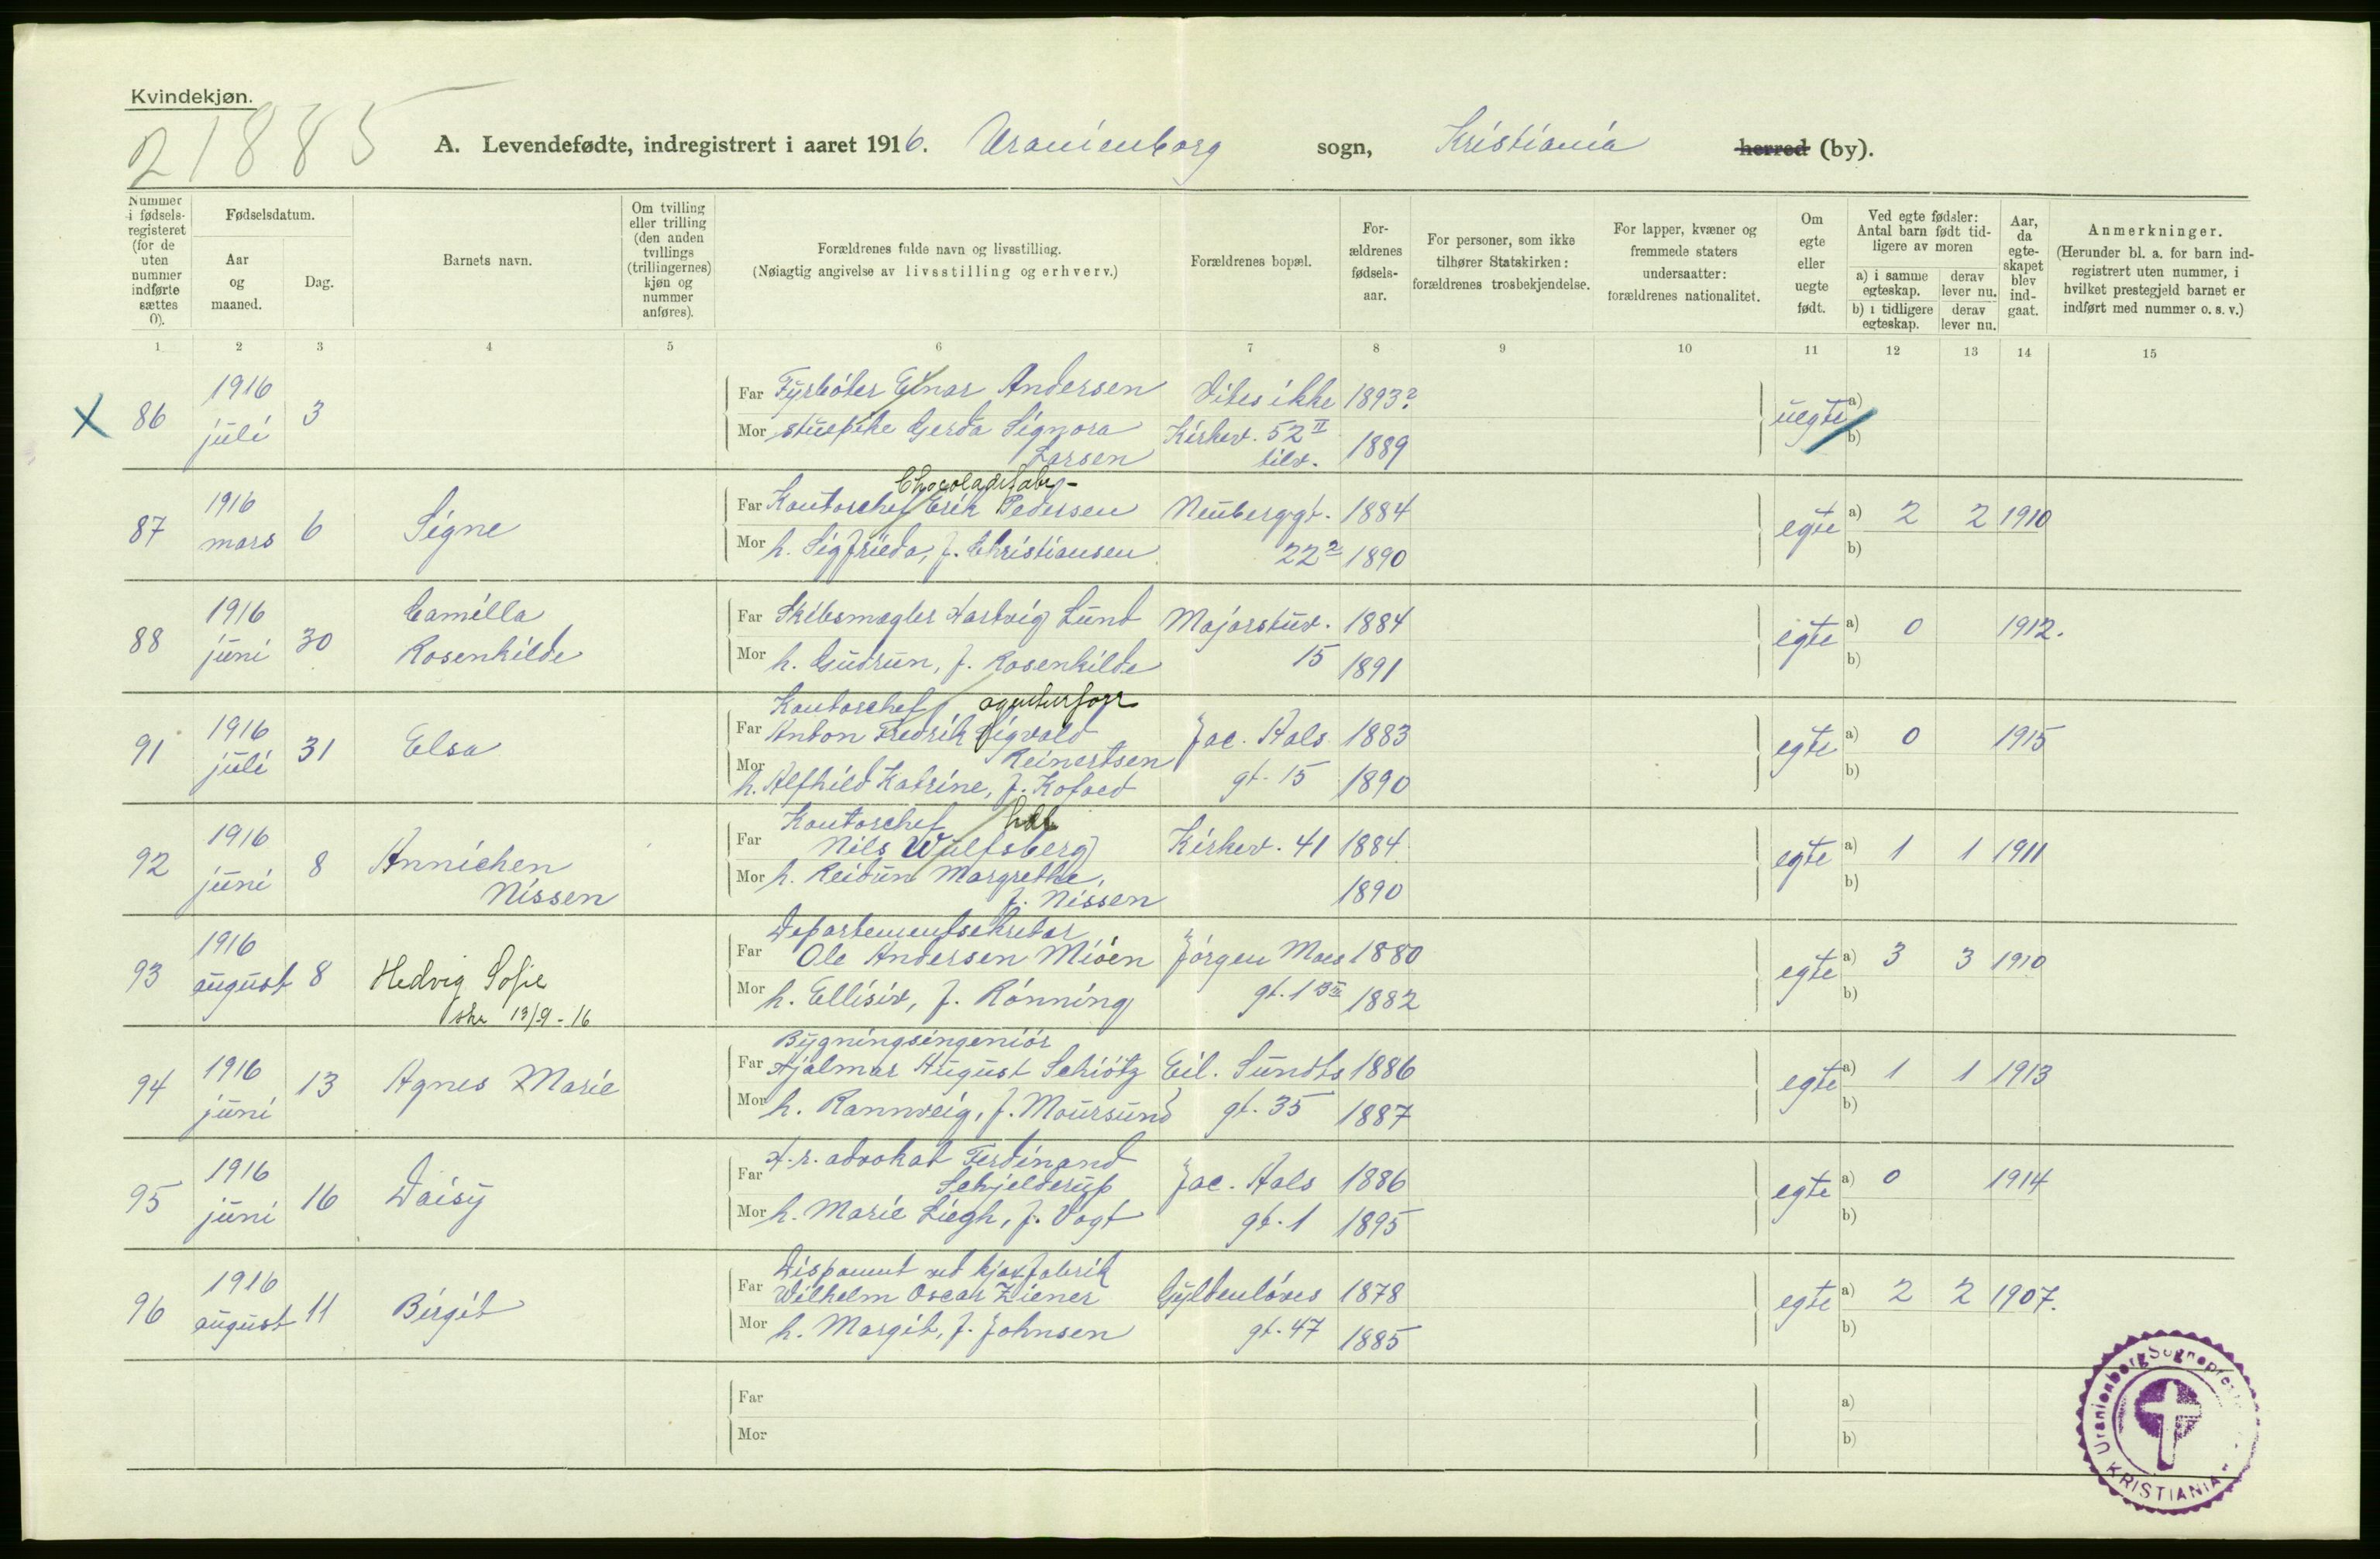 Kvindekjøn.
21885
A. Levendefødte, indregistrert i aaret 1916. Uranienborg sogn, Kristiania herred (by).
Nummer i fødsels-registeret (for de uten nummer indførte sættes 0).
Fødselsdatum.
Aar og maaned.
Dag.
Barnets navn.
Om tvilling eller trilling (den anden tvillings (trillingernes) kjøn og nummer anføres).
Forældrenes fulde navn og livsstilling.
(Nøiagtig angivelse av livsstilling og erhverv.)
Forældrenes bopæl.
For-ældrenes fødsels-aar.
For personer, som ikke tilhører Statskirken: forældrenes trosbekjendelse.
For lapper, kvæner og fremmede staters undersaatter: forældrenes nationalitet.
Om egte eller uegte født.
Ved egte fødsler: Antal barn født tid-ligere av moren
a) i samme egteskap.
derav lever nu.
b) i tidligere egteskap.
derav lever nu.
Aar, da egte-skapet blev ind-gaat.
Anmerkninger.
(Herunder bl. a. for barn ind-registrert uten nummer, i hvilket prestegjeld barnet er indført med nummer o. s. v.)
1 2 3 4 5 6 7 8 9 10 11 12 13 14 15
X 86 1916 juli 3
Far Fyrböter Einar Andersen Vites ikke 1893?
Mor stuepike Gerda Signora Larsen Kirkev. 52 II tilv. 1889
uegte a) b)
87 1916 mars 6 Signe
Chocoladefabr-
Far Kontorchef Erik Pedersen Neuberggt. 1884
Mor h. Sigfrieda, f. Christiansen 22 2 1890
egte a) 2 2 1910
b)
88 1916 juni 30 Camilla Rosenkilde
Far Skibsmægler Hartvig Lund Majorstuv. 1884
Mor h. Gudrun, f. Rosenkilde 15 1891
egte a) 0 1912.
b)
91 1916 juli 31 Elsa
Kontorchef agenturforr
Far Anton Fredrik Sigvald Reinertsen Jac. Aals 1883
Mor h. Alfhild Katrine, f. Kofoed gt. 15 1890
egte a) 0 1915
b)
92 1916 juni 8 Annichen Nissen
Kontorchef
Far Nils Wulfsberg Kirkev. 41 1884
Mor h. Reidun Margrethe, f. Nissen 1890
egte a) 1 1 1911
b)
93 1916 august 8 Hedvig Sofie
skr 13/9-16
Departementsekretær
Far Ole Andersen Miöen Jörgen Moes 1880
Mor h. Ellisiv, f. Rönning gt. 13 III 1882
egte a) 3 3 1910
b)
94 1916 juni 13 Agnes Marie
Bygningsingeniör
Far Hjalmar August Schiötz Eil. Sundts 1886
Mor h. Rannveig, f. Moursund gt. 35 1887
egte a) 1 1 1913
b)
95 1916 juni 16 Daisy
H.r. advokat Ferdinand
Far Schjelderup Jac. Aals 1886
Mor h. Marie Liegh, f. Vogt gt. 1 1895
egte a) 0 1914
b)
96 1916 august 11 Birgit
Disponent ved kjoxfabrik
Far Wilhelm Oscar Ziener Gyldenlöves 1878
Mor h. Margit, f. Johnsen gt. 47 1885
egte a) 2 2 1907.
b)
Far
Mor
a)
b)
Uranienborg Sognepres
KRISTIANIA